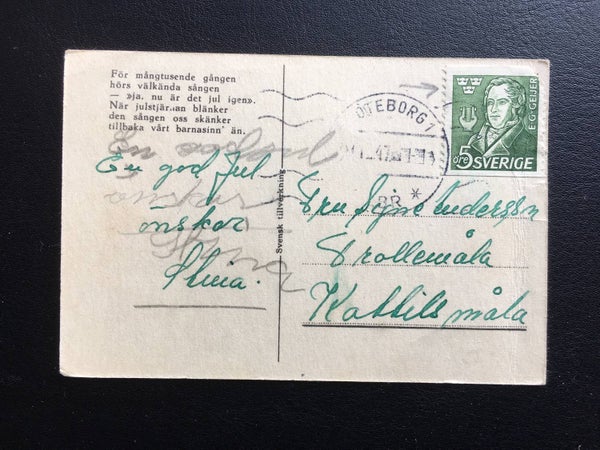 För mångtusende gången
hörs välkända sången
— »ja, nu är det jul igen».
När julstjärnan blänker
den sången oss skänker
tillbaka vårt barnasinn' än.
En god Jul
önskar
Stina.
Svensk tillverkning
GÖTEBORG 1
BR *
E·G·GEIJER
5 öre SVERIGE
Fru Signe Andersson
Trollemåla
Kättilsmåla